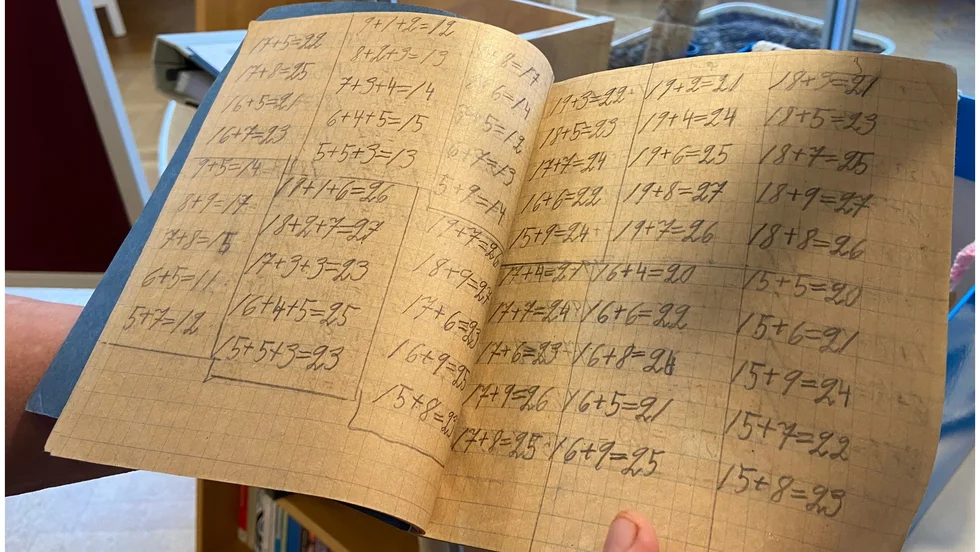 17+5=22
17+8=25
16+5=21
16+7=23
9+5=14
8+9=17
7+8=15
6+5=11
5+7=12
9+1+2=12
8+2+3=13
7+3+4=14
6+4+5=15
5+5+3=13
19+1+6=26
18+2+7=27
17+3+3=23
16+4+5=25
15+5+3=23
8=17
6=14
5=12
6+7=13
5+9=14
19+7=26
18+9=27
17+6=23
16+9=25
15+8=23
19+3=22
18+5=23
17+7=24
16+6=22
15+9=24
17+4=21
17+7=24
17+6=23
17+9=26
17+8=25
19+2=21
19+4=24
19+6=25
19+8=27
19+7=26
16+4=20
16+6=22
16+8=24
16+5=21
16+9=25
18+3=21
18+5=23
18+7=25
18+9=27
18+8=26
15+5=20
15+6=21
15+9=24
15+7=22
15+8=23